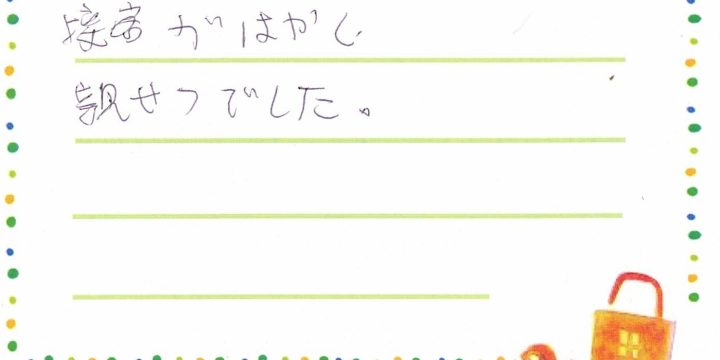 接客がはやく
親せつでした。